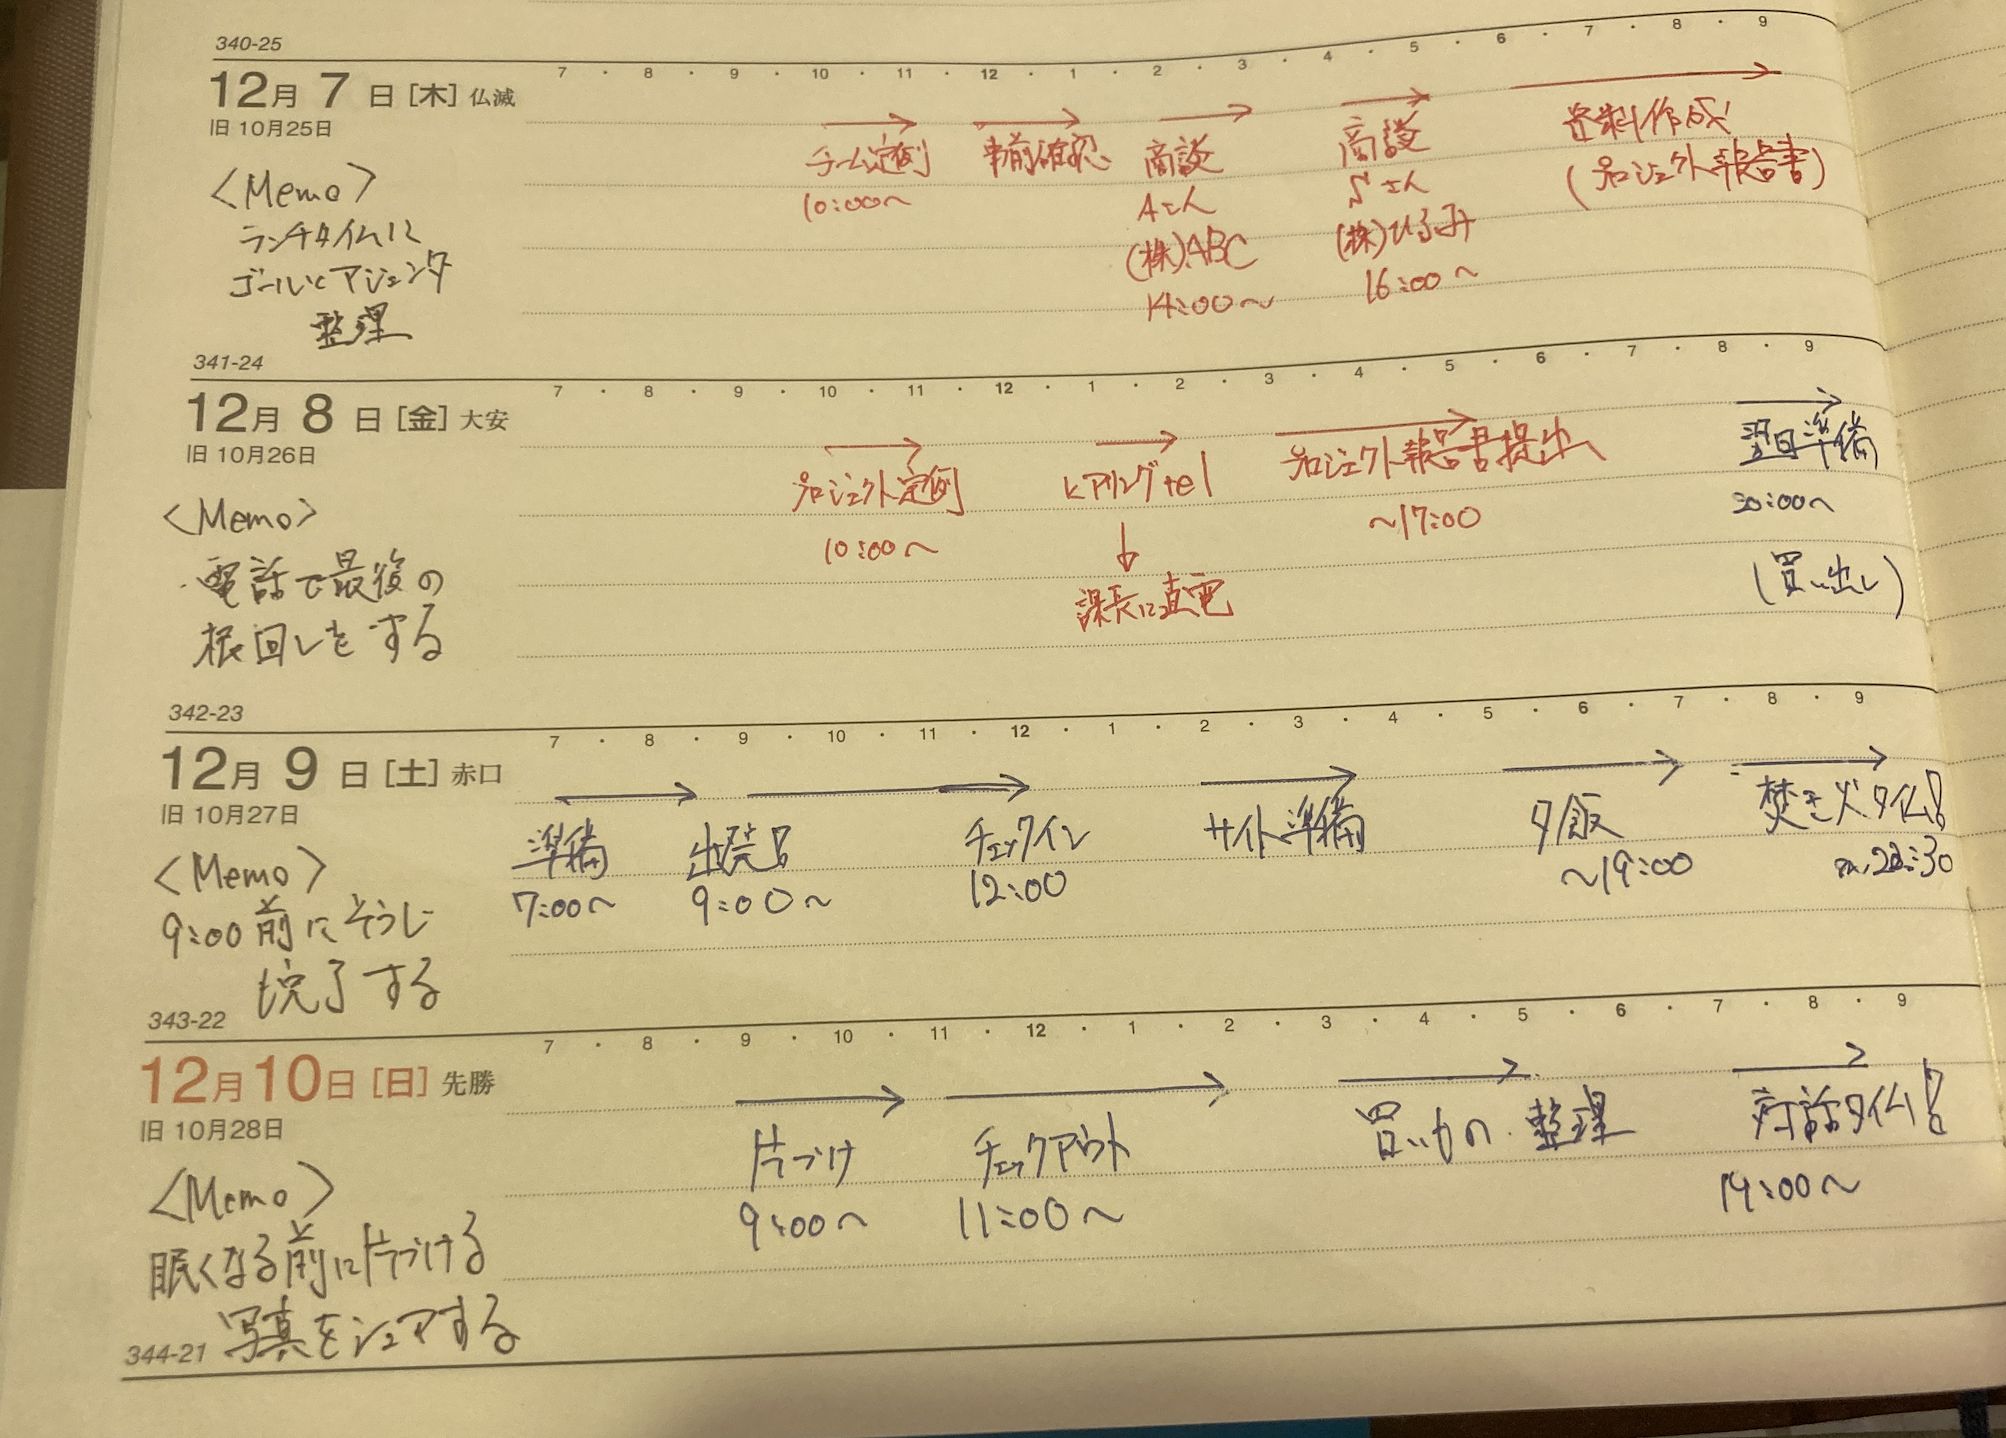 340-25
7 ・ 8 ・ 9 ・ 10 ・ 11 ・ 12 ・ 1 ・ 2 ・ 3 ・ 4 ・ 5 ・ 6 ・ 7 ・ 8 ・ 9
12月 7 日 [木] 仏滅
旧 10月25日
<Memo>
ランチタイムに
ゴールとアジェンダ
整理
チーム定例
10:00~
事前確認
商談
Aさん
(株)ABC
14:00~
商談
Sさん
(株)ひるみ
16:00~
資料作成!
(プロジェクト報告書)
341-24
7 ・ 8 ・ 9 ・ 10 ・ 11 ・ 12 ・ 1 ・ 2 ・ 3 ・ 4 ・ 5 ・ 6 ・ 7 ・ 8 ・ 9
12月 8 日 [金] 大安
旧 10月26日
<Memo>
・電話で最後の
根回しをする
プロジェクト定例
10:00~
ヒアリングtel
↓
課長に直電
プロジェクト報告書提出
~17:00
翌日準備
20:00~
(買い出し)
342-23
7 ・ 8 ・ 9 ・ 10 ・ 11 ・ 12 ・ 1 ・ 2 ・ 3 ・ 4 ・ 5 ・ 6 ・ 7 ・ 8 ・ 9
12月 9 日 [土] 赤口
旧 10月27日
<Memo>
9:00前にそうじ
も完了する
準備
7:00~
出発!
9:00~
チェックイン
12:00
サイト準備
夕飯
~19:00
焚き火タイム!
22:30
343-22
7 ・ 8 ・ 9 ・ 10 ・ 11 ・ 12 ・ 1 ・ 2 ・ 3 ・ 4 ・ 5 ・ 6 ・ 7 ・ 8 ・ 9
12月10日 [日] 先勝
旧 10月28日
<Memo>
眠くなる前に片づける
写真をシェアする
片づけ
9:00~
チェックアウト
11:00~
買いもの・整理
対話タイム!
19:00~
344-21